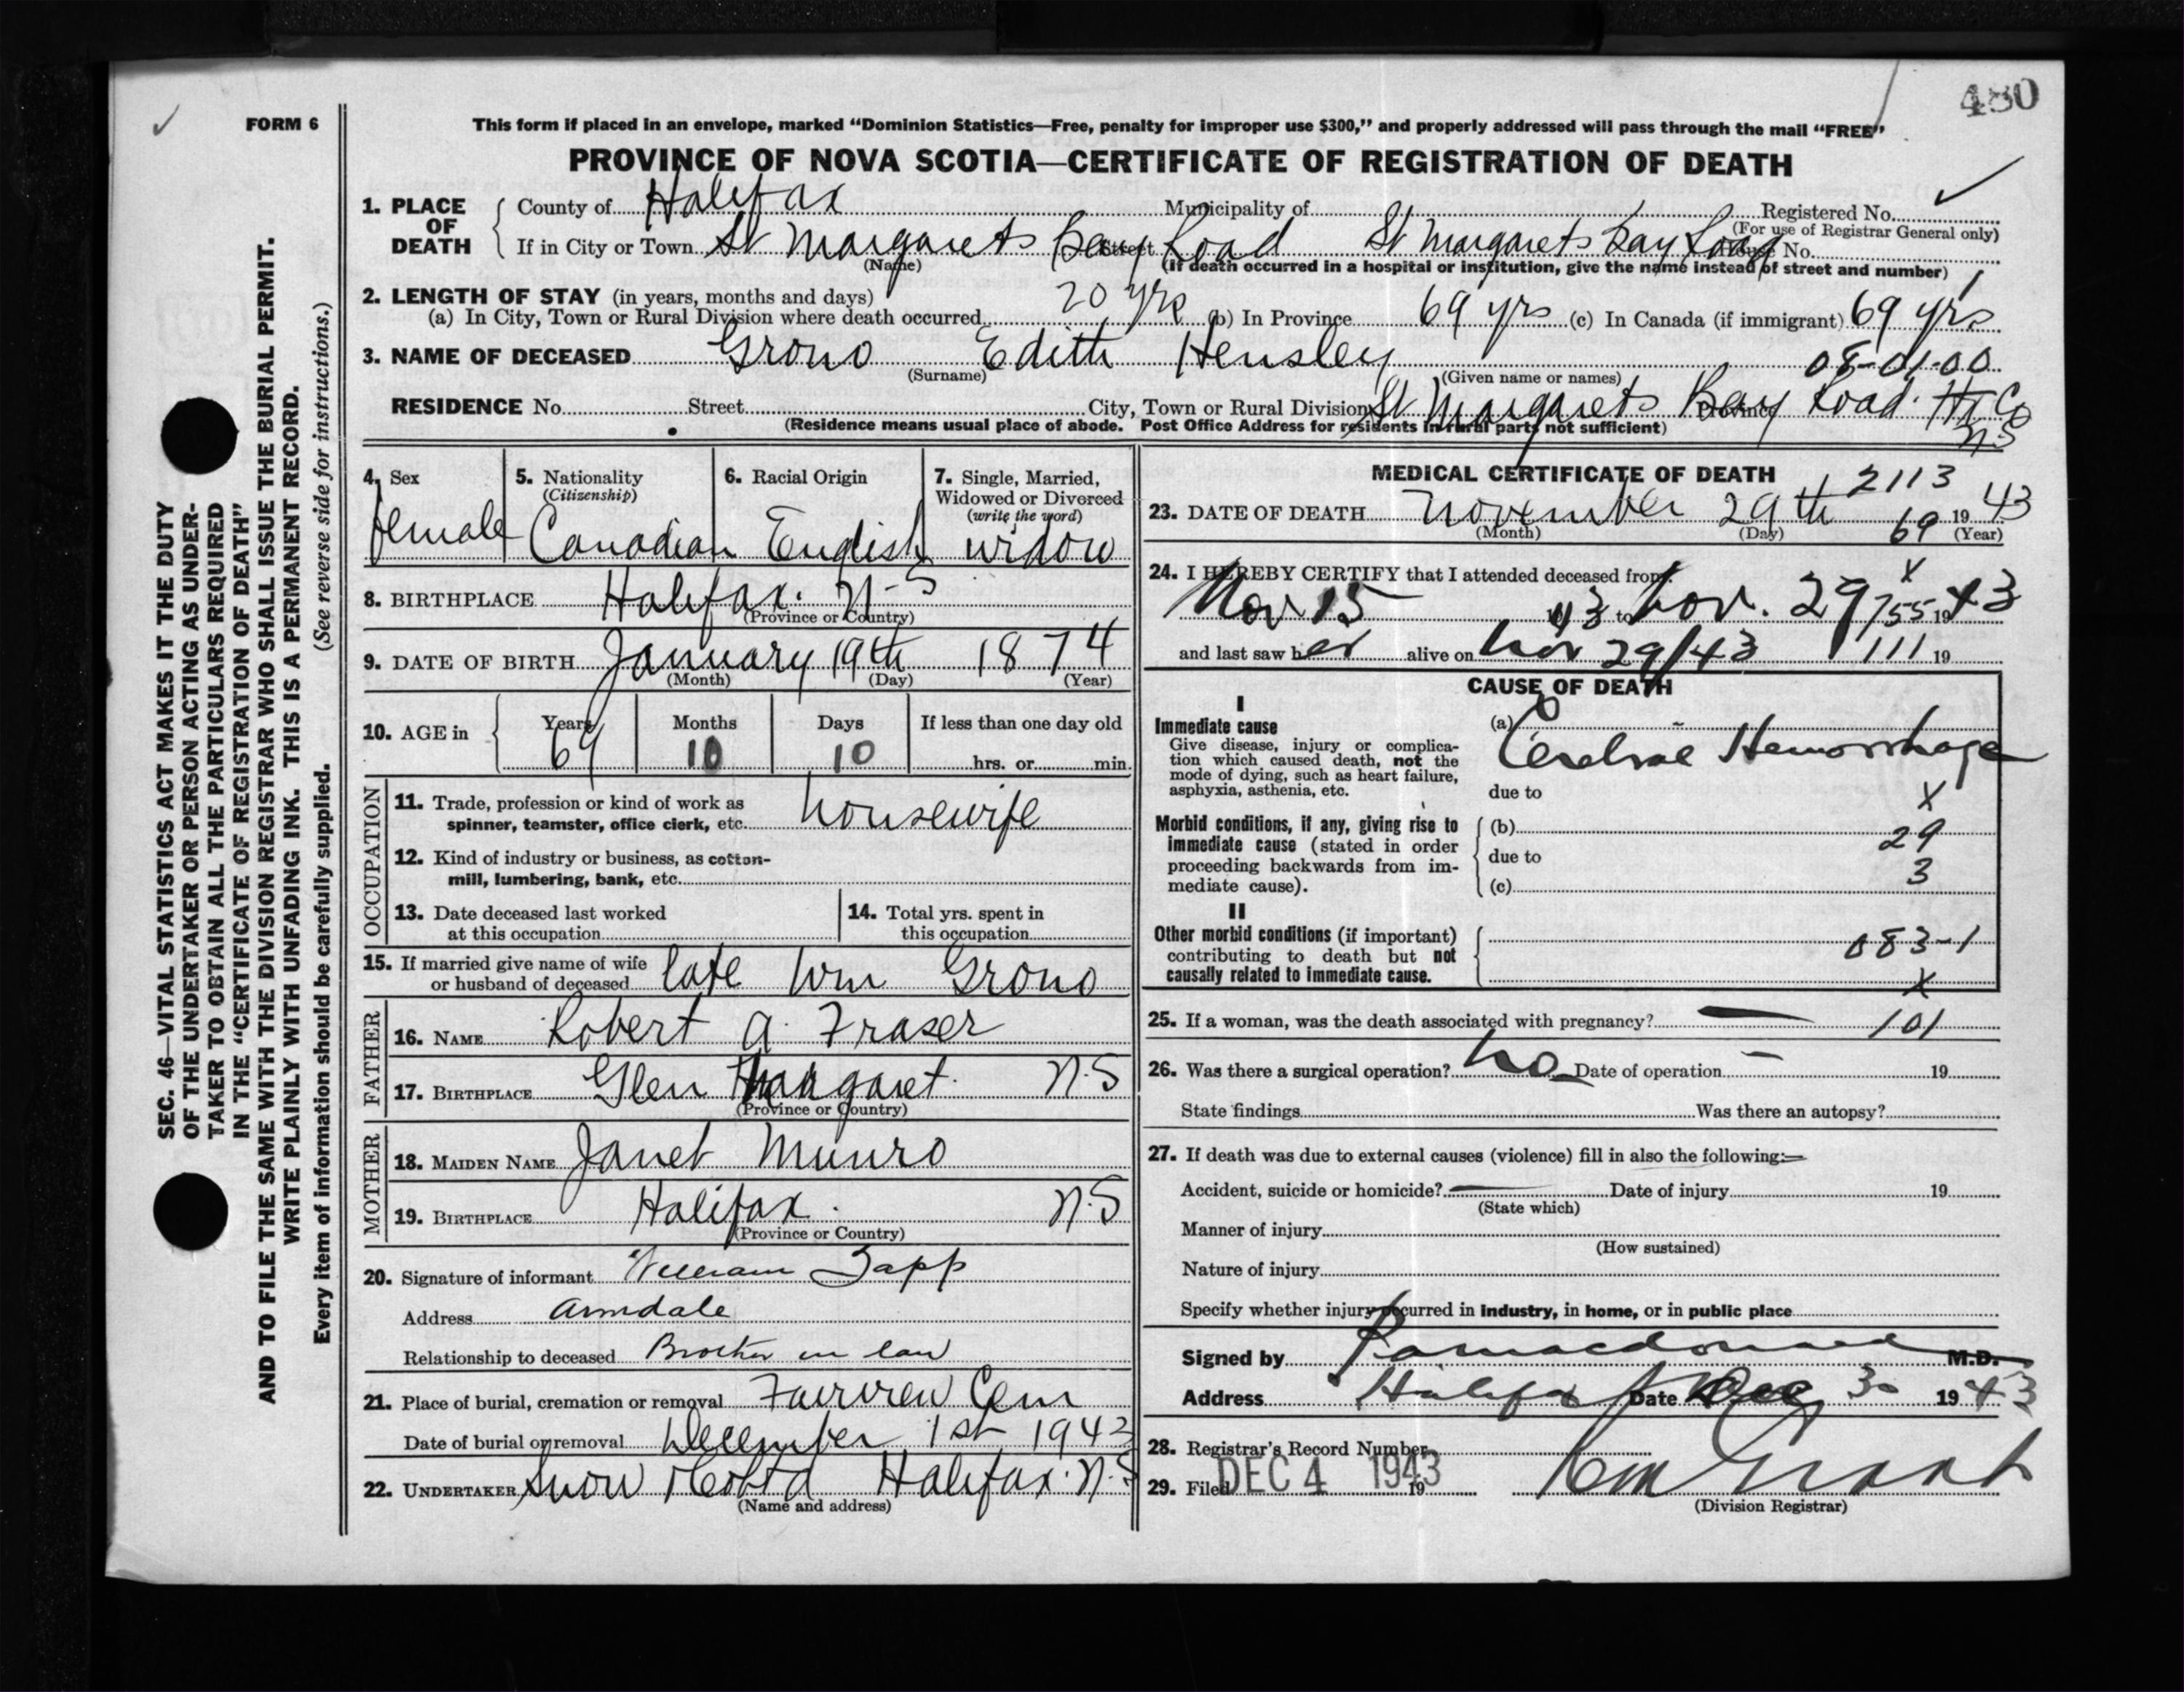 480
FORM 6
This form if placed in an envelope, marked “Dominion Statistics—Free, penalty for improper use $300,” and properly addressed will pass through the mail “FREE”
PROVINCE OF NOVA SCOTIA—CERTIFICATE OF REGISTRATION OF DEATH
1. PLACE OF DEATH
County of Halifax Municipality of Registered No.
(For use of Registrar General only)
If in City or Town St Margarets Bay Road Street St Margarets Bay Road House No.
(Name) (If death occurred in a hospital or institution, give the name instead of street and number)
2. LENGTH OF STAY (in years, months and days)
(a) In City, Town or Rural Division where death occurred 20 yrs (b) In Province 69 yrs (c) In Canada (if immigrant) 69 yrs
3. NAME OF DECEASED Grono Edith Hensley 08-01-00
(Surname) (Given name or names)
RESIDENCE No. Street City, Town or Rural Division St Margarets Bay Road Province Hx Co N.S
(Residence means usual place of abode. Post Office Address for residents in rural parts not sufficient)
4. Sex female
5. Nationality (Citizenship) Canadian
6. Racial Origin English
7. Single, Married, Widowed or Divorced (write the word) widow
8. BIRTHPLACE Halifax. N-S
(Province or Country)
9. DATE OF BIRTH January 19th 1874
(Month) (Day) (Year)
10. AGE in Years 69 Months 10 Days 10 If less than one day old hrs. or min.
OCCUPATION
11. Trade, profession or kind of work as spinner, teamster, office clerk, etc. housewife
12. Kind of industry or business, as cotton-mill, lumbering, bank, etc.
13. Date deceased last worked at this occupation
14. Total yrs. spent in this occupation
15. If married give name of wife or husband of deceased late Wm Grono
FATHER
16. NAME Robert A. Fraser
17. BIRTHPLACE Glen Margaret. N.S
(Province or Country)
MOTHER
18. MAIDEN NAME Janet Munro
19. BIRTHPLACE Halifax. N.S
(Province or Country)
20. Signature of informant William Tapp
Address Armdale
Relationship to deceased Brother in law
21. Place of burial, cremation or removal Fairview Cem
Date of burial or removal December 1st 1943
22. UNDERTAKER Snow & Co Ltd Halifax. N.S
(Name and address)
MEDICAL CERTIFICATE OF DEATH
2113
23. DATE OF DEATH November 29th 1943
(Month) (Day) 69 (Year)
24. I HEREBY CERTIFY that I attended deceased from X
Nov 15 1943 to Nov. 29 755 1943
and last saw her alive on Nov 29/43 111 19
CAUSE OF DEATH
I
Immediate cause
Give disease, injury or complication which caused death, not the mode of dying, such as heart failure, asphyxia, asthenia, etc.
(a) Cerebral Hemorrhage
due to X
Morbid conditions, if any, giving rise to immediate cause (stated in order proceeding backwards from immediate cause).
(b) 29
due to
(c) 3
II
Other morbid conditions (if important) contributing to death but not causally related to immediate cause.
083-1
X
25. If a woman, was the death associated with pregnancy? — 101
26. Was there a surgical operation? No Date of operation — 19
State findings Was there an autopsy?
27. If death was due to external causes (violence) fill in also the following:—
Accident, suicide or homicide? — Date of injury 19
(State which)
Manner of injury
(How sustained)
Nature of injury
Specify whether injury occurred in industry, in home, or in public place
Signed by M.D.
Address Halifax Date 30 1943
28. Registrar's Record Number
29. Filed DEC 4 1943 19
Grant
(Division Registrar)
SEC. 46—VITAL STATISTICS ACT MAKES IT THE DUTY
OF THE UNDERTAKER OR PERSON ACTING AS UNDER-
TAKER TO OBTAIN ALL THE PARTICULARS REQUIRED
IN THE “CERTIFICATE OF REGISTRATION OF DEATH”
AND TO FILE THE SAME WITH THE DIVISION REGISTRAR WHO SHALL ISSUE THE BURIAL PERMIT.
WRITE PLAINLY WITH UNFADING INK. THIS IS A PERMANENT RECORD.
Every item of information should be carefully supplied. (See reverse side for instructions.)